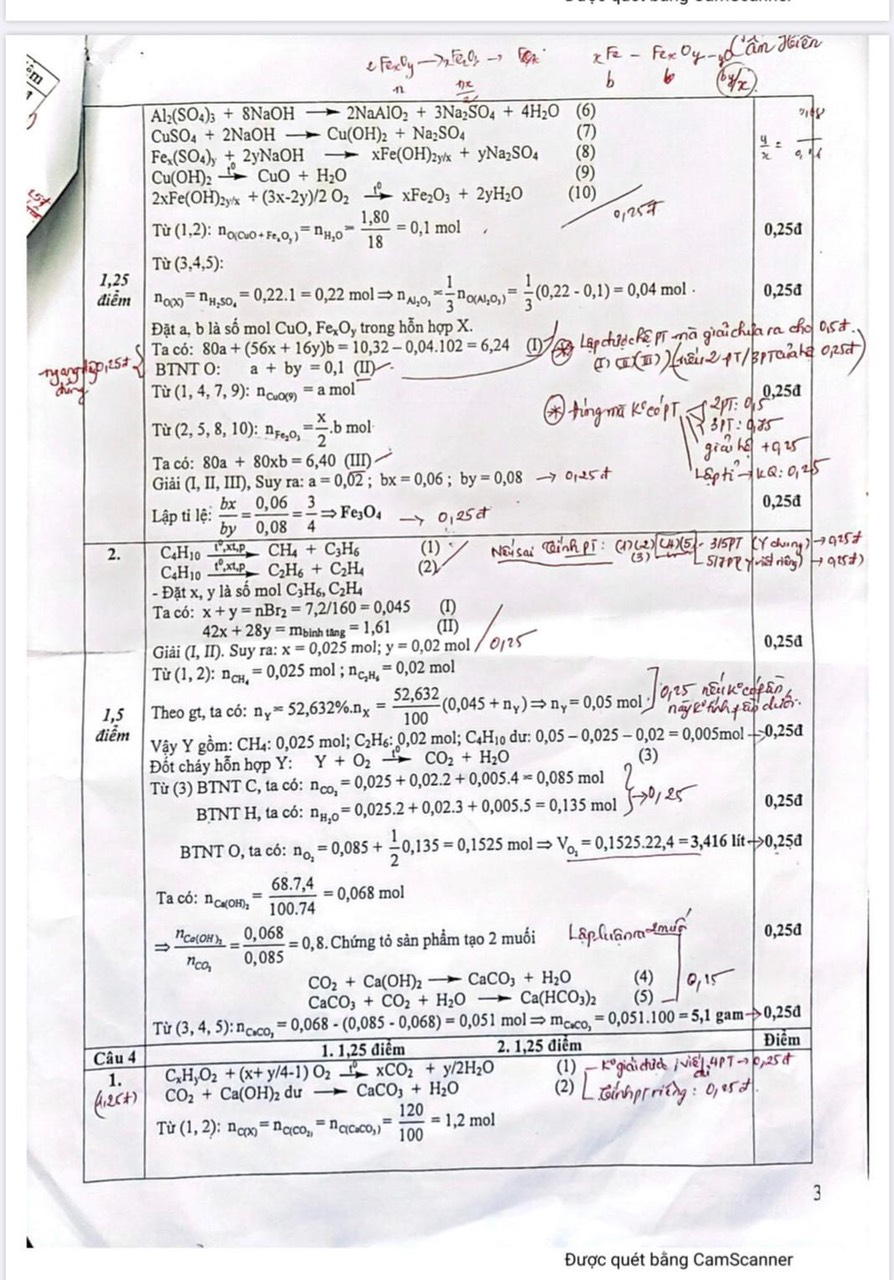 Được quét bằng CamScanner
Cẩm Hiên
Al₂(SO₄)₃ + 8NaOH → 2NaAlO₂ + 3Na₂SO₄ + 4H₂O (6)
CuSO₄ + 2NaOH → Cu(OH)₂ + Na₂SO₄ (7)
Feₓ(SO₄)ᵧ + 2yNaOH → xFe(OH)2y/x + yNa₂SO₄ (8)
Cu(OH)₂ –t⁰→ CuO + H₂O (9)
2xFe(OH)2y/x + (3x-2y)/2 O₂ –t⁰→ xFe₂O₃ + 2yH₂O (10)
0,25đ
Từ (1,2): nO(CuO + FeₓOᵧ) = nH₂O = 1,80/18 = 0,1 mol 0,25đ
Từ (3,4,5):
1,25 điểm
nO(X) = nH₂SO₄ = 0,22.1 = 0,22 mol ⇒ nAl₂O₃ = 1/3 nO(Al₂O₃) = 1/3 (0,22 - 0,1) = 0,04 mol 0,25đ
Đặt a, b là số mol CuO, FeₓOᵧ trong hỗn hợp X.
Ta có: 80a + (56x + 16y)b = 10,32 – 0,04.102 = 6,24 (I)
Lập được hệ PT mà giải chưa ra cho 0,5đ.
BTNT O: a + by = 0,1 (II)
Từ (1, 4, 7, 9): nCuO(9) = a mol 0,25đ
Từ (2, 5, 8, 10): nFe₂O₃ = x/2 .b mol
đúng mà K° có PT
2PT: 0,5
giải hệ +0,25
Lập tỉ → KQ: 0,25
Ta có: 80a + 80xb = 6,40 (III)
Giải (I, II, III), Suy ra: a = 0,02 ; bx = 0,06 ; by = 0,08 → 0,25đ
Lập tỉ lệ: bx/by = 0,06/0,08 = 3/4 ⇒ Fe₃O₄ → 0,25đ 0,25đ
2.
C₄H₁₀ –t⁰,xt,p→ CH₄ + C₃H₆ (1)
C₄H₁₀ –t⁰,xt,p→ C₂H₆ + C₂H₄ (2)
- Đặt x, y là số mol C₃H₆, C₂H₄
Ta có: x + y = nBr₂ = 7,2/160 = 0,045 (I)
42x + 28y = mbình tăng = 1,61 (II)
Giải (I, II). Suy ra: x = 0,025 mol; y = 0,02 mol 0,25 0,25đ
Từ (1, 2): nCH₄ = 0,025 mol ; nC₂H₆ = 0,02 mol
1,5 điểm
Theo gt, ta có: nY = 52,632%.nX = 52,632/100 (0,045 + nY) ⇒ nY = 0,05 mol
Vậy Y gồm: CH₄: 0,025 mol; C₂H₆: 0,02 mol; C₄H₁₀ dư: 0,05 – 0,025 – 0,02 = 0,005mol → 0,25đ
Đốt cháy hỗn hợp Y: Y + O₂ –t⁰→ CO₂ + H₂O (3)
Từ (3) BTNT C, ta có: nCO₂ = 0,025 + 0,02.2 + 0,005.4 = 0,085 mol
→ 0,25
BTNT H, ta có: nH₂O = 0,025.2 + 0,02.3 + 0,005.5 = 0,135 mol 0,25đ
BTNT O, ta có: nO₂ = 0,085 + 1/2 0,135 = 0,1525 mol ⇒ VO₂ = 0,1525.22,4 = 3,416 lít → 0,25đ
Ta có: nCa(OH)₂ = 68.7,4/100.74 = 0,068 mol
⇒ nCa(OH)₂/nCO₂ = 0,068/0,085 = 0,8. Chứng tỏ sản phẩm tạo 2 muối 0,25đ
Lập luận ra 2 muối
CO₂ + Ca(OH)₂ → CaCO₃ + H₂O (4)
CaCO₃ + CO₂ + H₂O → Ca(HCO₃)₂ (5)
Từ (3, 4, 5): nCaCO₃ = 0,068 - (0,085 - 0,068) = 0,051 mol ⇒ mCaCO₃ = 0,051.100 = 5,1 gam → 0,25đ
Câu 4 1. 1,25 điểm 2. 1,25 điểm Điểm
1.
CₓHᵧO₂ + (x+ y/4-1) O₂ –t⁰→ xCO₂ + y/2H₂O (1)
CO₂ + Ca(OH)₂ dư → CaCO₃ + H₂O (2)
Từ (1, 2): nC(X) = nC(CO₂) = nC(CaCO₃) = 120/100 = 1,2 mol
3
Được quét bằng CamScanner